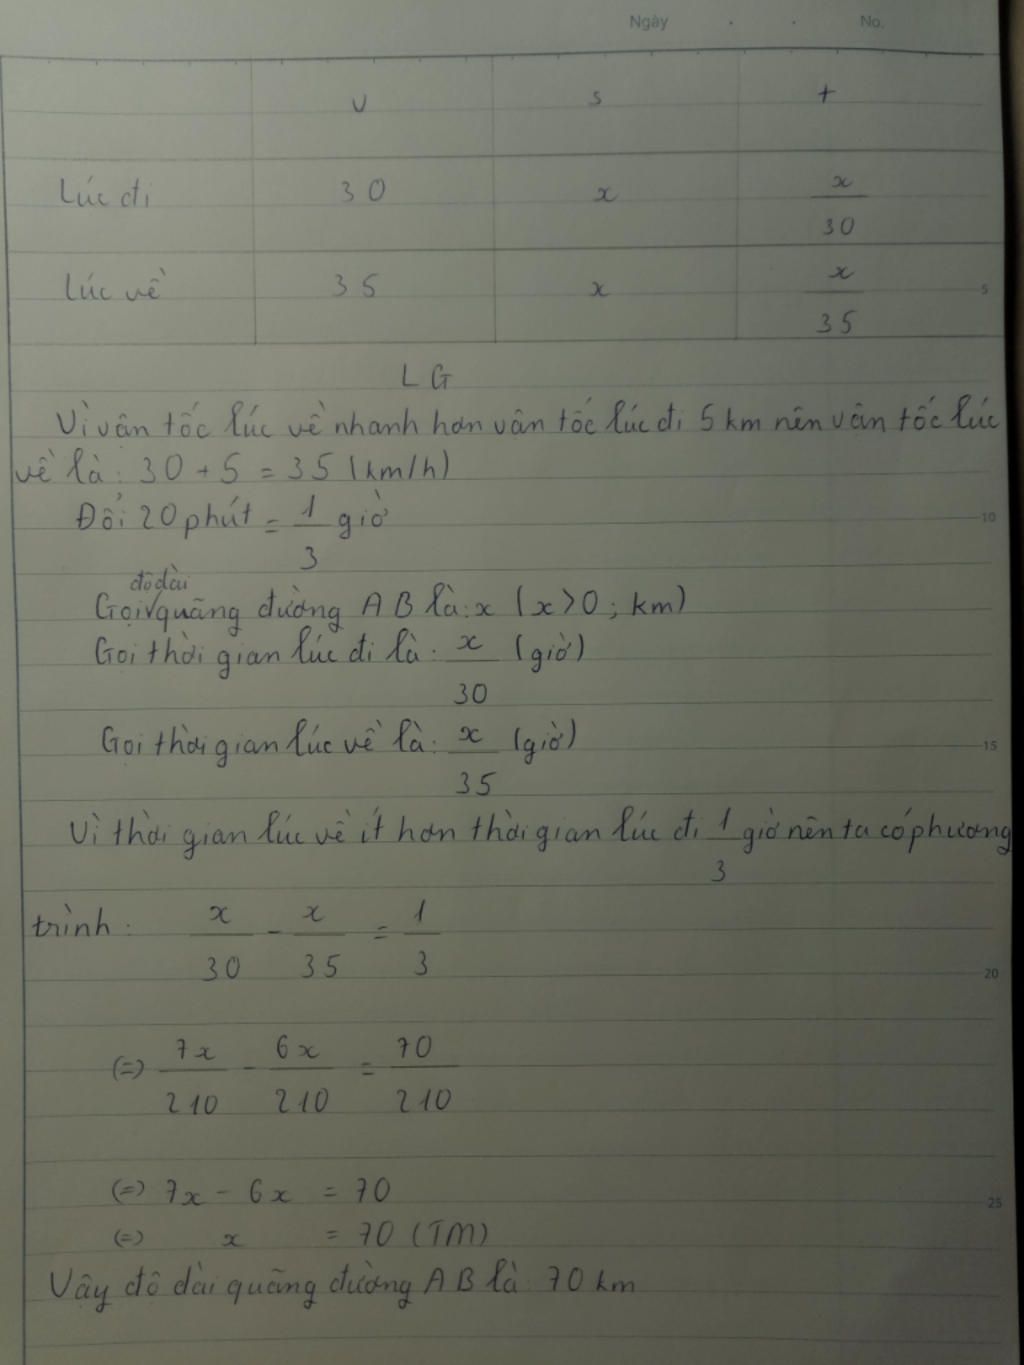 Ngày . . No.
v s t
Lúc đi 30 x x/30
Lúc về 35 x x/35
5
LG
Vì vận tốc lúc về nhanh hơn vận tốc lúc đi 5 km nên vận tốc lúc
về là: 30 + 5 = 35 (km/h)
Đổi 20 phút = 1/3 giờ
10
độ dài
Gọi quãng đường AB là: x (x > 0; km)
Gọi thời gian lúc đi là: x/30 (giờ)
Gọi thời gian lúc về là: x/35 (giờ)
15
Vì thời gian lúc về ít hơn thời gian lúc đi 1/3 giờ nên ta có phương
trình: x/30 - x/35 = 1/3
20
(=) 7x/210 - 6x/210 = 70/210
(=) 7x - 6x = 70
25
(=) x = 70 (TM)
Vậy độ dài quãng đường AB là 70 km